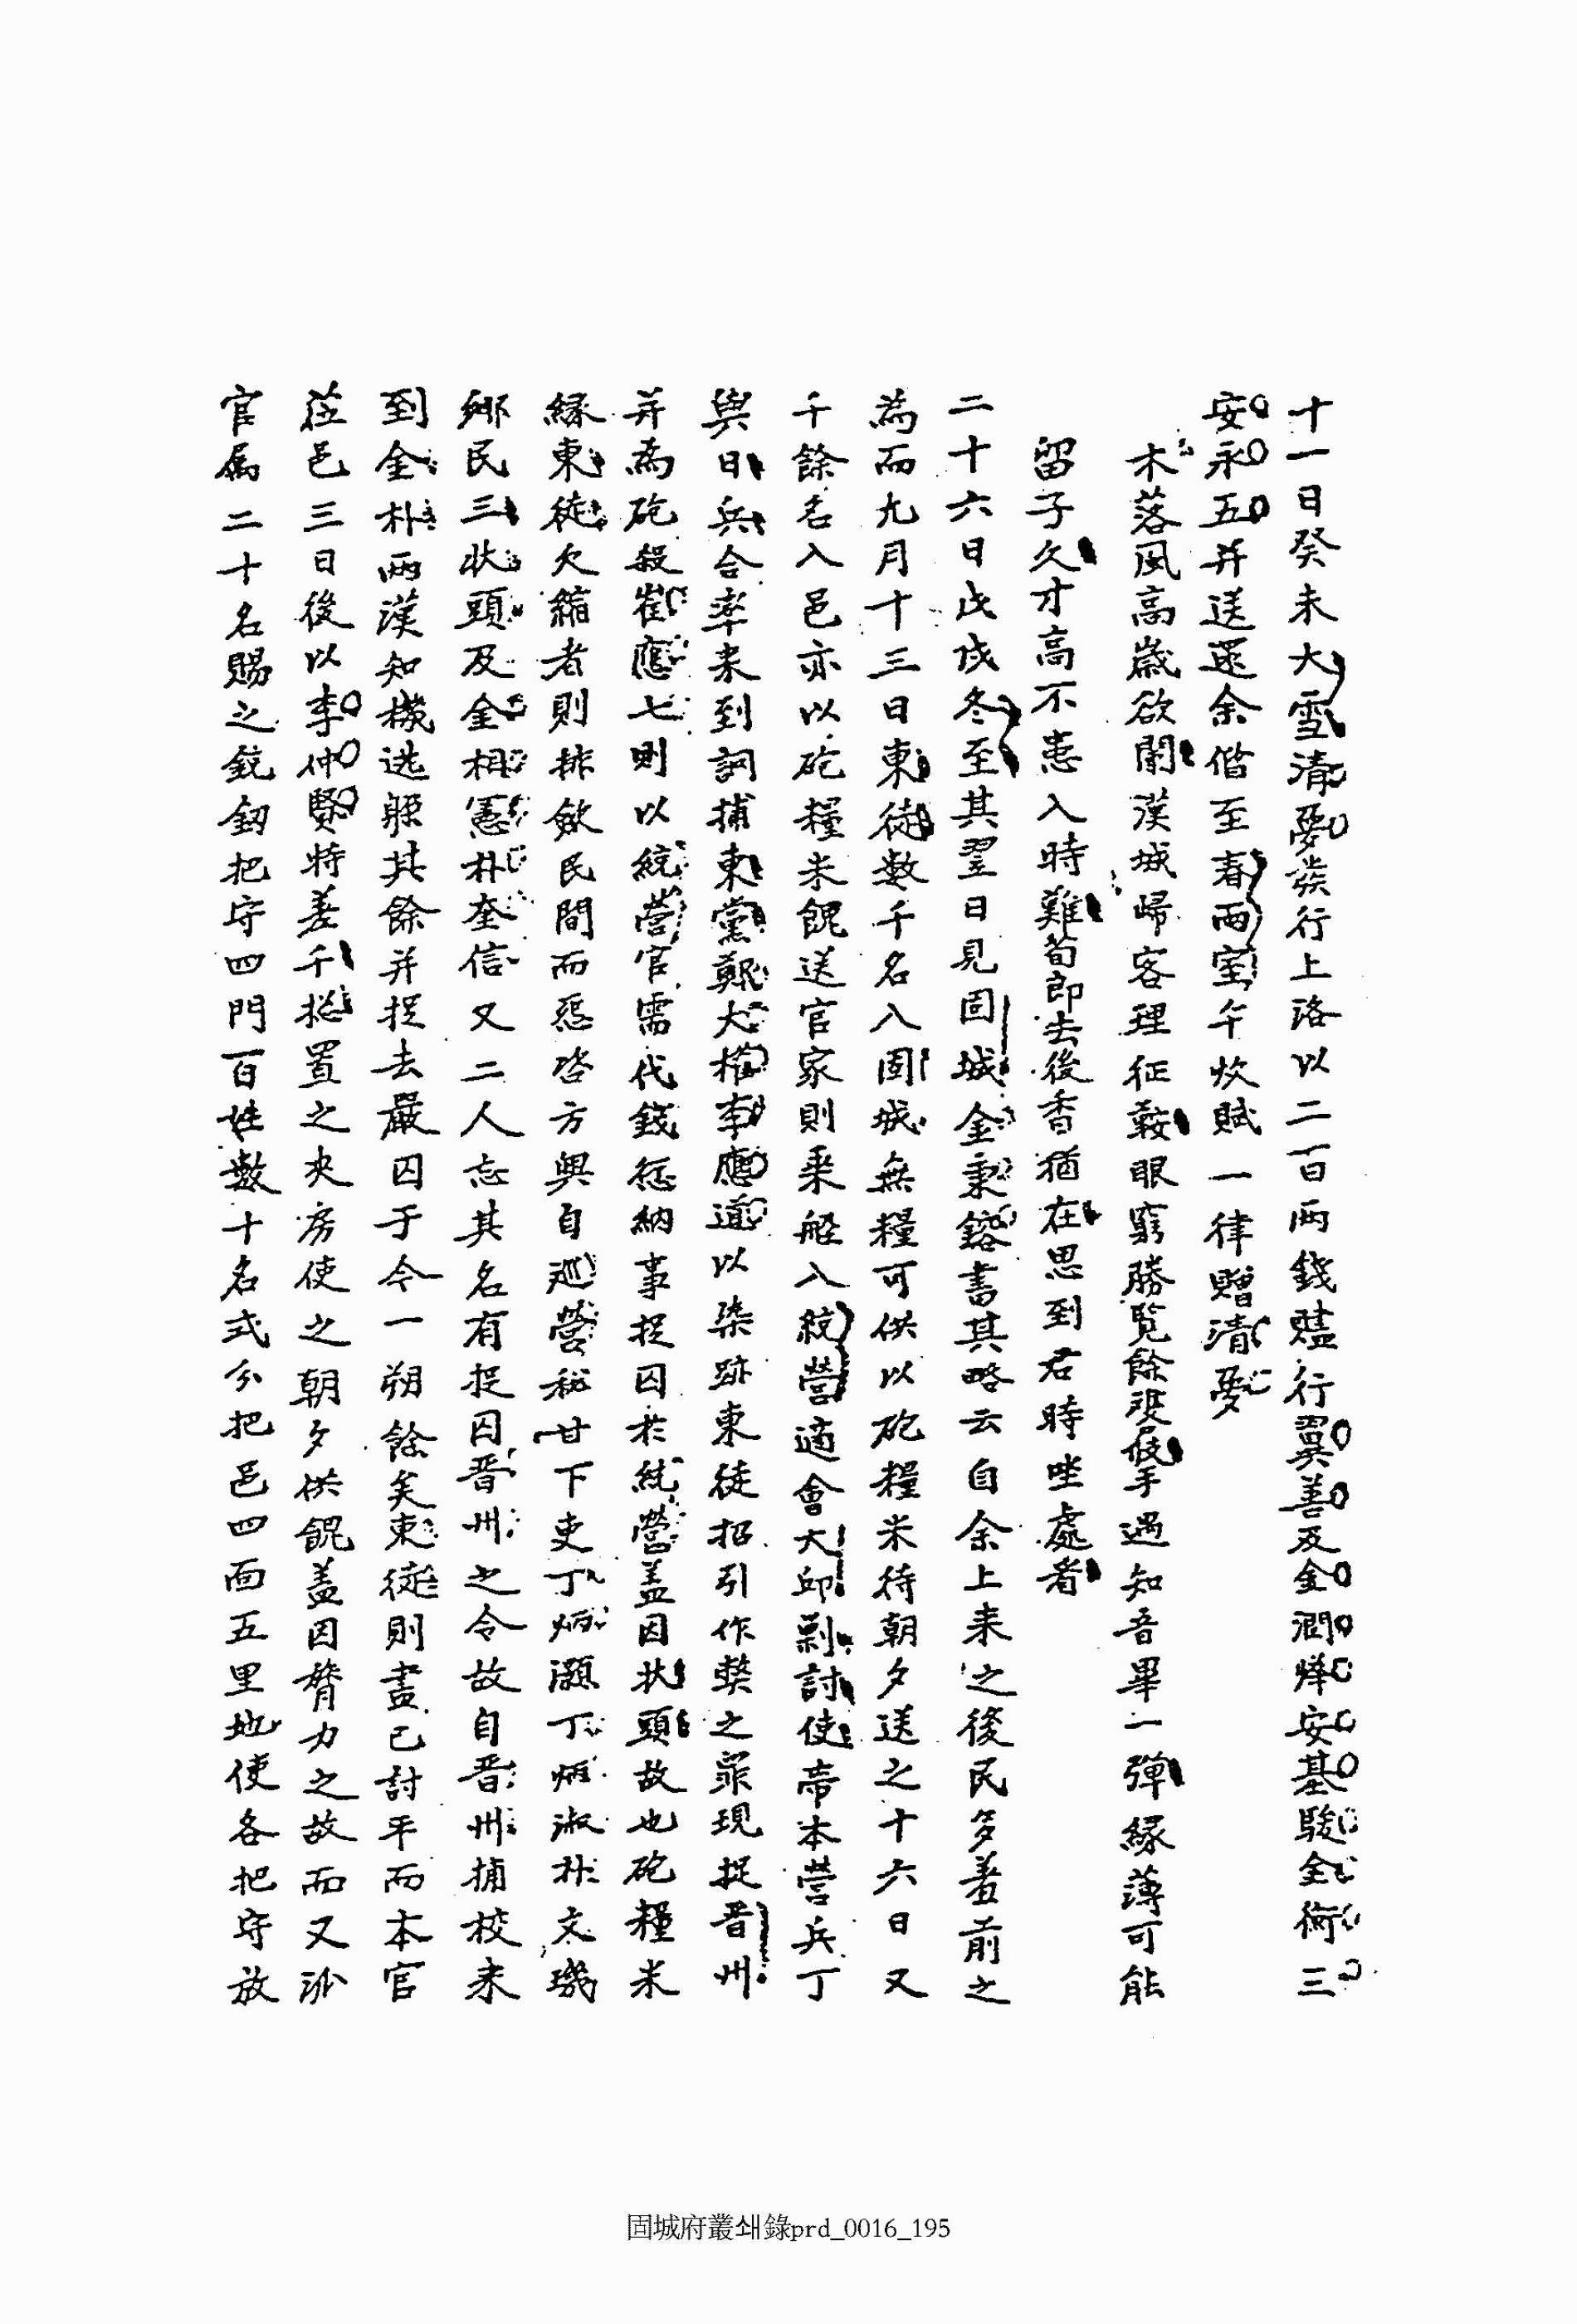 十一日癸未大雪清夢發行上洛以二百兩錢贐行翼善及金潤燁安基駿金衡三
安永五并送還余偕至春雨室午炊賦一律贈清夢
木落風高歲欲闌漢城歸客理征鞍眼窮勝覽餘波硯手遇知音畢一彈緣薄可能
留子久才高不患入時難荀郎去後香猶在思到君時坐處看
二十六日戊戌冬至其翌日見固城金秉鎔書其略云自余上来之後民多羞前之
為而九月十三日東徒數千名入固城無糧可供以砲糧米待朝夕送之十六日又
千餘名入邑亦以砲糧米餽送官家則乗船入統營適會大邱剿討使帝本營兵丁
與日兵合率来到詗捕東黨鄭大權李應道以染跡東徒招引作獘之罪現捉晋州
并為砲殺崔應七則以統營官需代錢愆納事捉囚於統營盖因狀頭故也砲糧米
緣東徒欠縮者則排斂民間而怨咨方興自巡營秘甘下吏丁炳灝丁炳淑朴文璣
鄉民三狀頭及金相憲朴奎信又二人忘其名有捉囚晋州之令故自晋州捕校来
到金朴兩漢知機逃躲其餘并捉去嚴囚于今一朔餘矣東徒則盡已討平而本官
莅邑三日後以李仲賢特差千摠置之夾房使之朝夕供餽盖因膂力之故而又沙
官属二十名賜之銃釰把守四門百姓數十名式分把邑四面五里地使各把守放